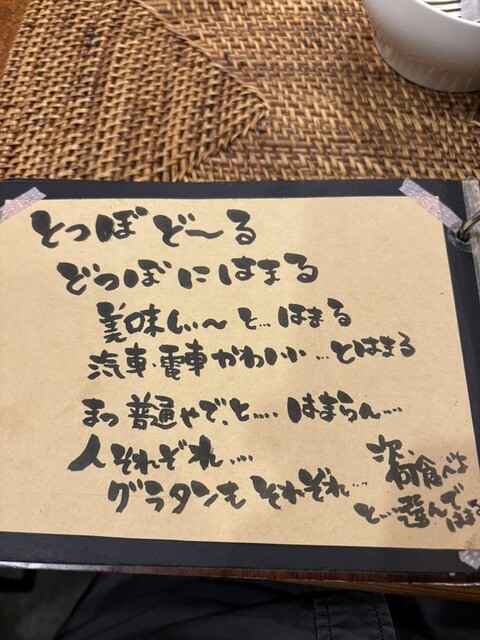 とっぽ ど～る
どつぼにはまる
美味しい～と… はまる
汽車・電車かわいい…とはまる
まっ普通やで、と…. はまらん….
人それぞれ….
グラタンもそれぞれ…
次、何食べよ
と…選んで
はまる